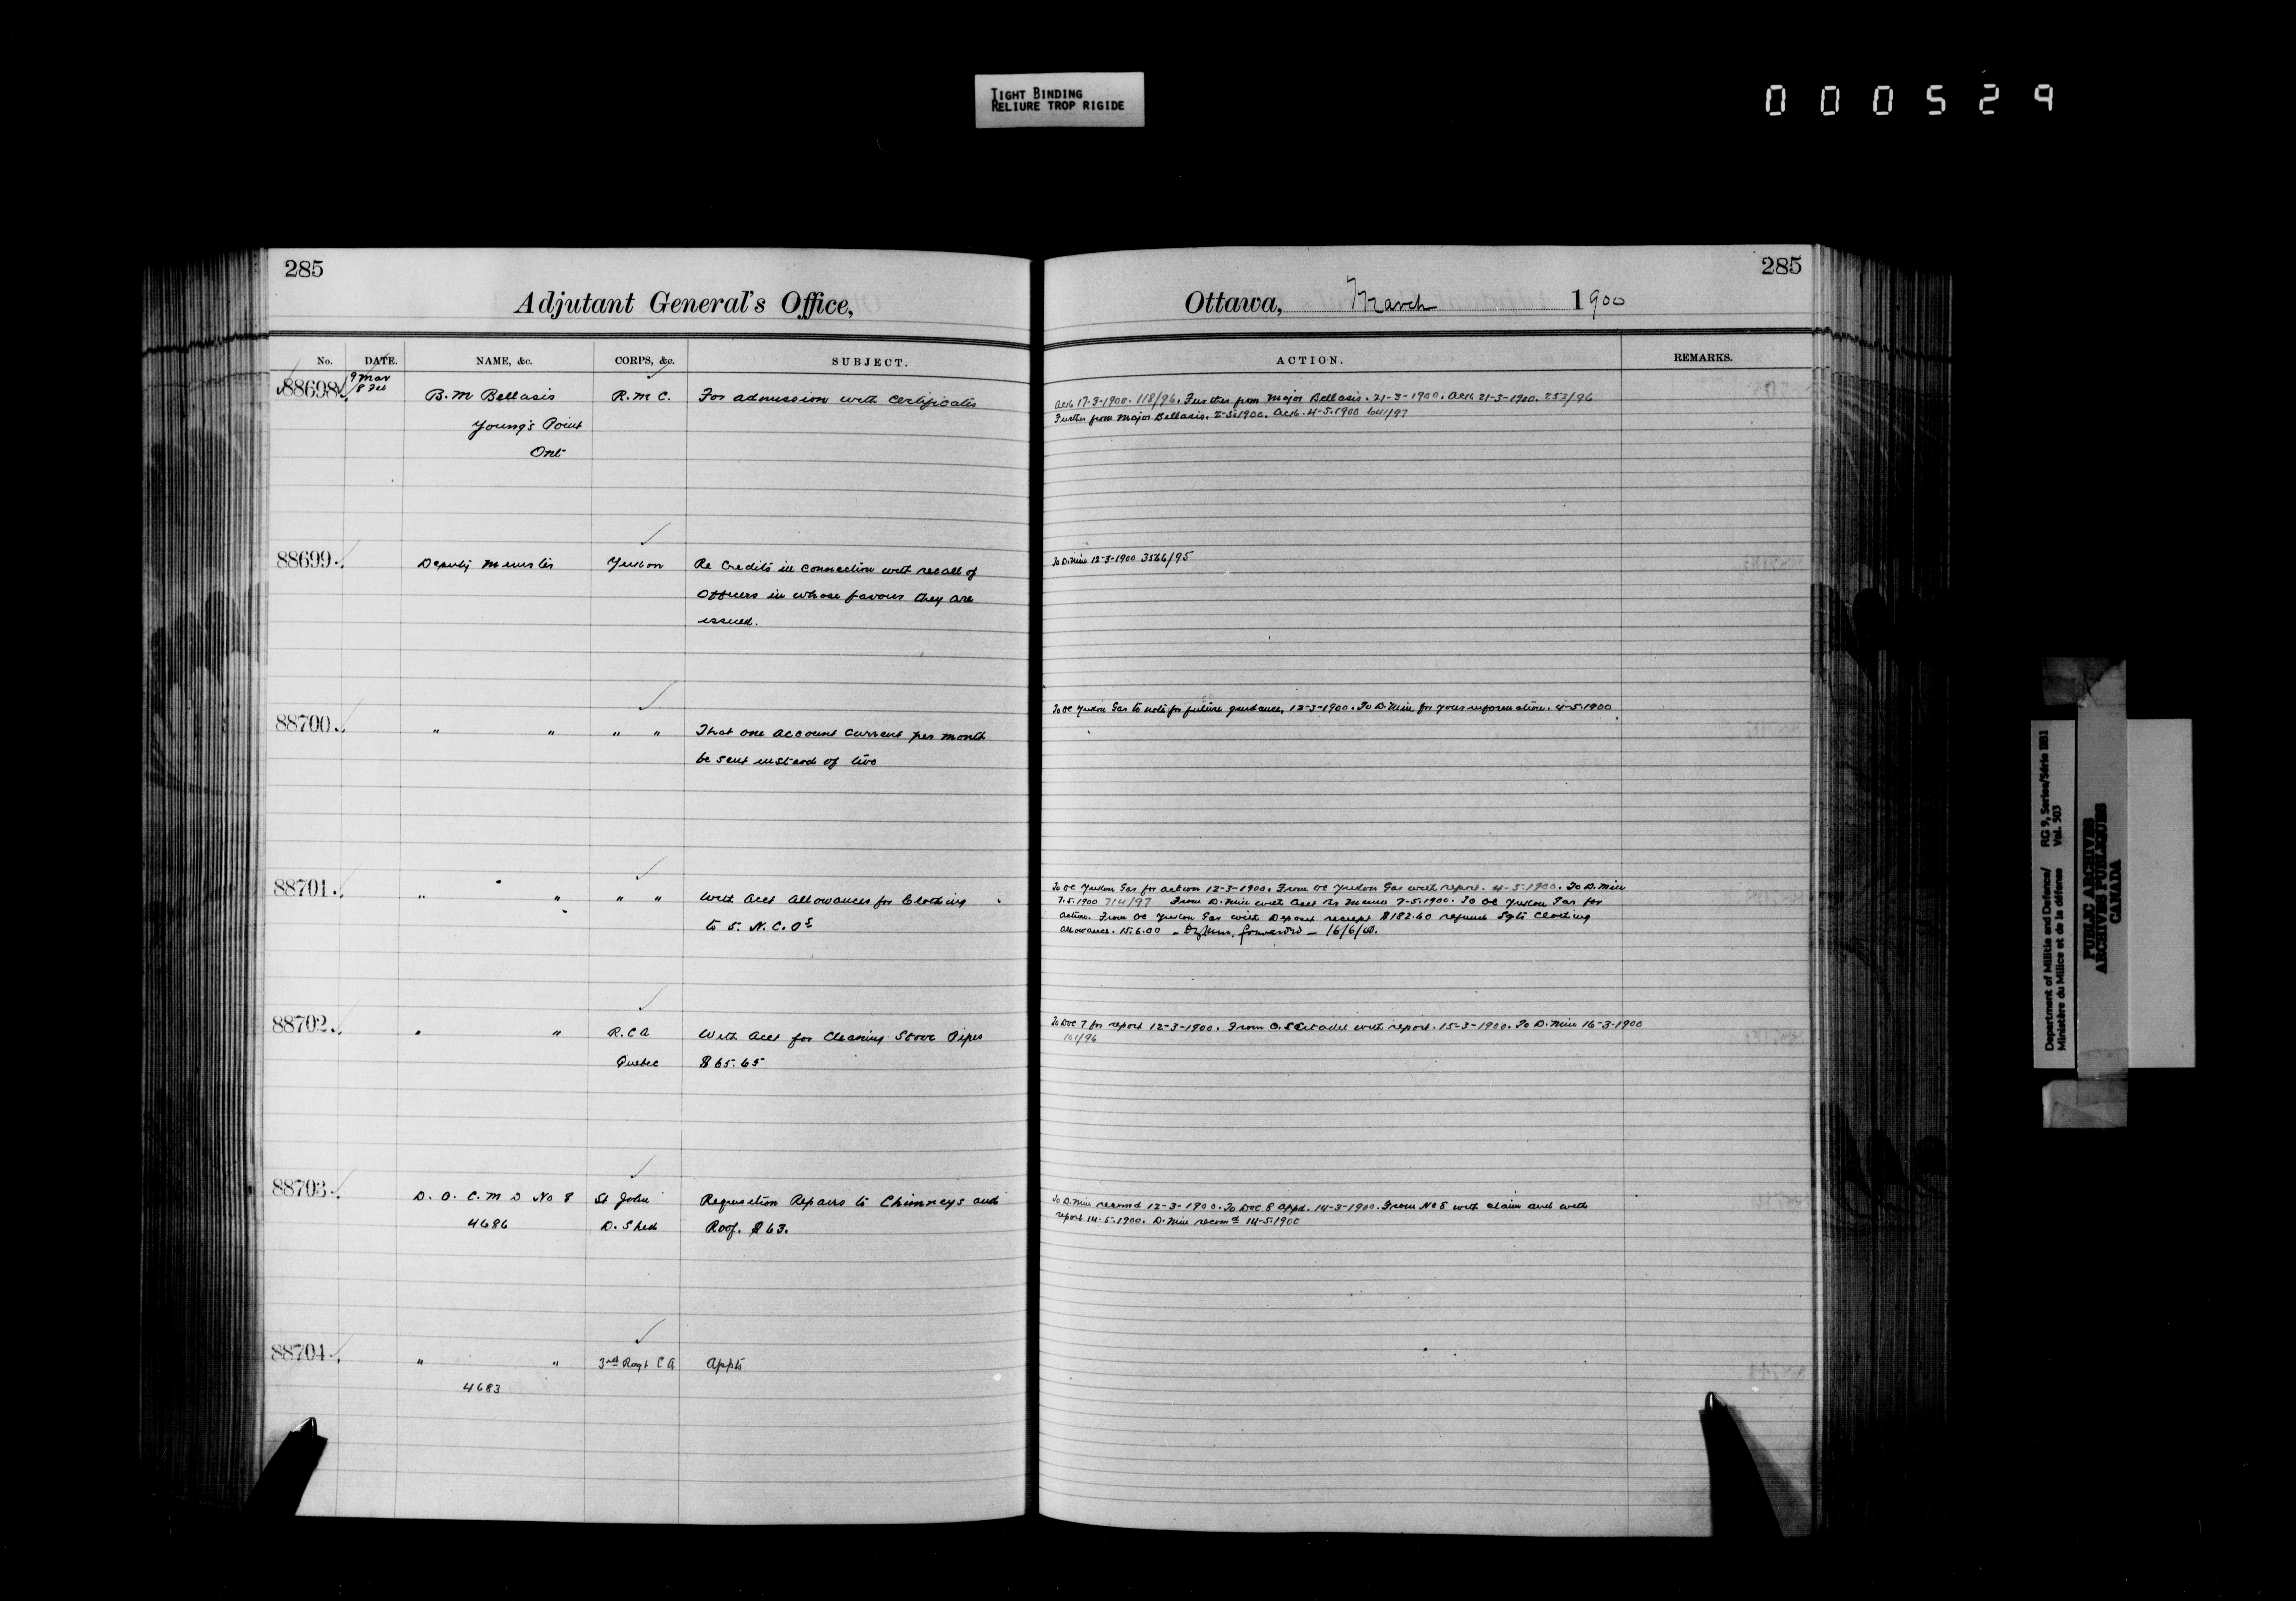 TIGHT BINDING
RELIURE TROP RIGIDE
000529
285
Adjutant General's Office,
No. DATE. NAME, &c. CORPS, &c. SUBJECT.
88698 9 Mar
8 Feb
B. M Bellasis R. M C. For admission with certificates
Young's Point
Ont
88699 Deputy Minister Yukon Re Credits in connection with recall of
Officers in whose favour they are
issued.
88700 " " " " That one account current per month
be sent instead of two
88701 " " " " With Acct Allowances for Clothing
to 5. N. C. Os
88702 " " R. C A With Acct for Cleaning Stove Pipes
Quebec $65.65
88703 D. O. C. M D No 8 St John Requisition Repairs to Chimneys and
4686 D. Shed Roof. $63.
88704 " " 3rd Regt C A Appts
4683
285
Ottawa, March 1900
ACTION. REMARKS.
Ack 17-3-1900. 118/96. Further from Major Bellasis. 21-3-1900. Ack 21-3-1900. 252/96
Further from Major Bellasis. 2-5-1900. Ack. 4-5-1900 641/97
To D. Min 12-3-1900 3566/95
To OC Yukon Gar to note for future guidance, 12-3-1900. To D. Min for your information. 4-5-1900
To OC Yukon Gar for action 12-3-1900. From OC Yukon Gar with report. 4-5-1900. To D. Min
7.5.1900 714/97 From D. Min with Acct As Memo 7-5-1900. To OC Yukon Gar for
action. From OC Yukon Gar with Deposit receipt $182.60 refund Sgts Clothing
allowance. 15.6.00 forwarded – 16/6/00.
To DOC 7 for report 12-3-1900. From O. S Citadel with report. 15-3-1900. To D. Min 16-3-1900
101/96
To D. Min recomd 12-3-1900. To DOC 8 appd. 14-3-1900. From No 8 with claim and with
report 14-5-1900. D. Min recomd 14-5-1900
Department of Militia and Defence/ RG 9, Series/Série IIB1
Ministère du Milice et de la défense Vol. 503
PUBLIC ARCHIVES
ARCHIVES PUBLIQUES
CANADA